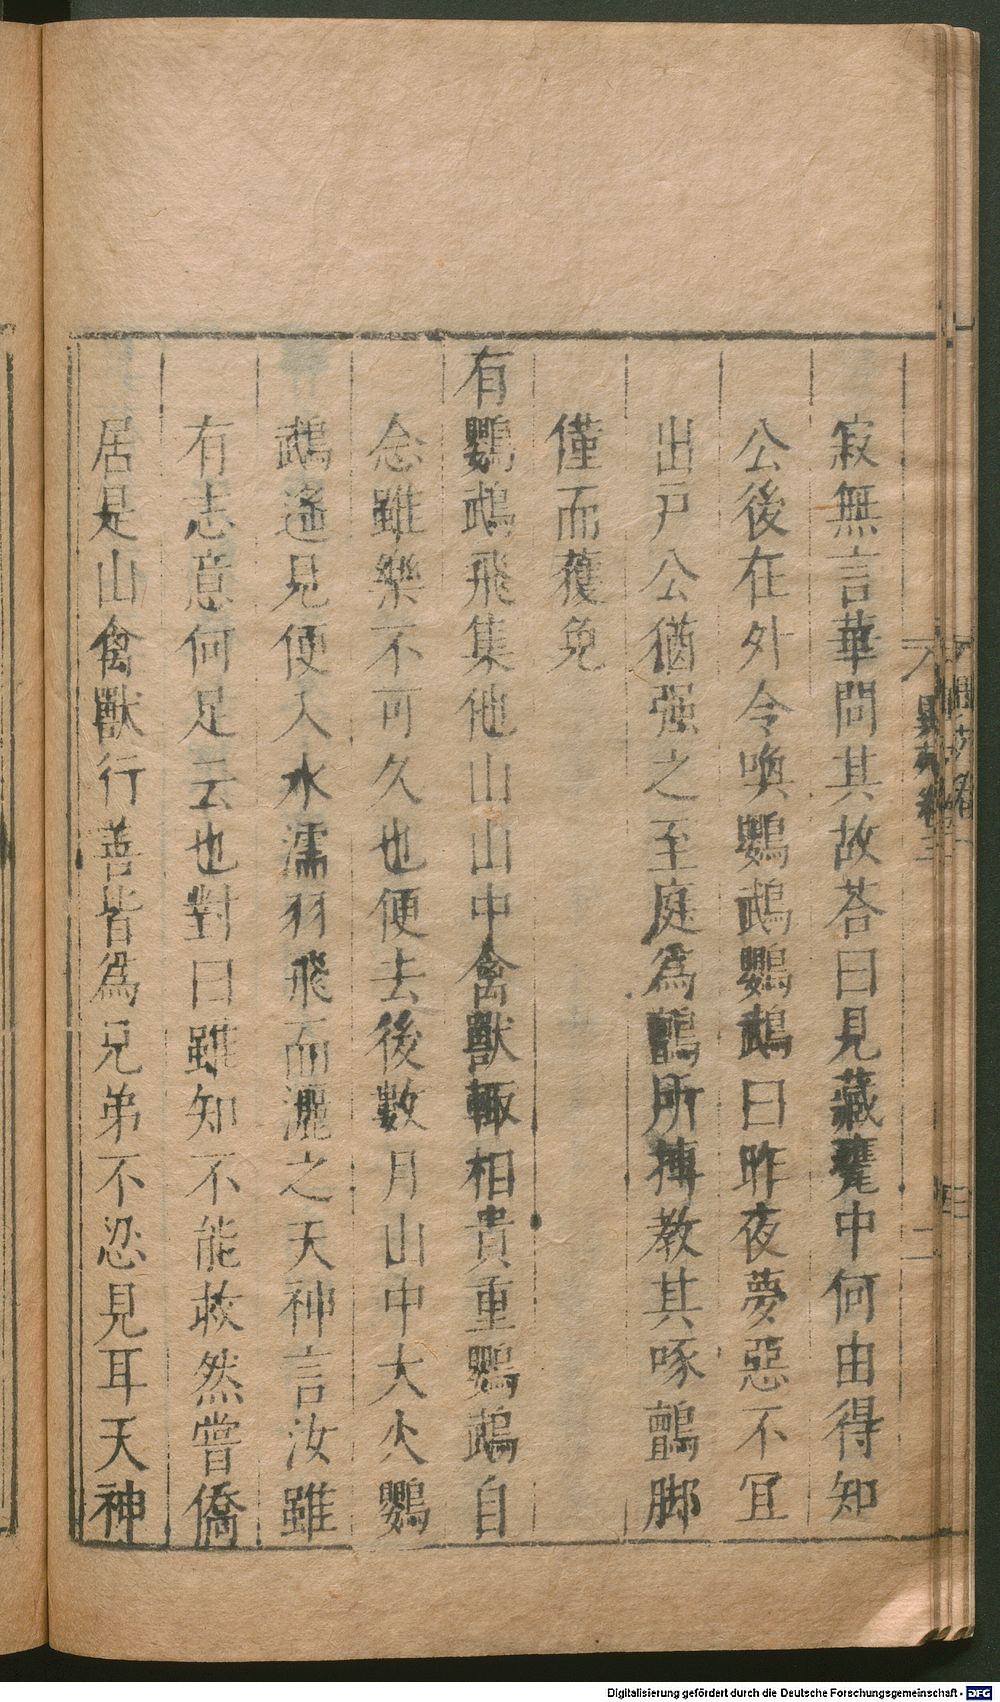 寂無言華問其故荅曰見藏甕中何由得知
公後在外令喚鸚鵡鸚鵡曰昨夜夢惡不宜
出戶公猶强之至庭爲鸇所搏教其啄鸇脚
僅而獲免
有鸚鵡飛集他山山中禽獸輙相貴重鸚鵡自
念雖樂不可久也便去後數月山中大火鸚
鵡遙見便入水濡羽飛而灑之天神言汝雖
有志意何足云也對曰雖知不能救然嘗僑
居是山禽獸行善皆爲兄弟不忍見耳天神
異苑卷三
二
Digitalisierung gefördert durch die Deutsche Forschungsgemeinschaft - DFG